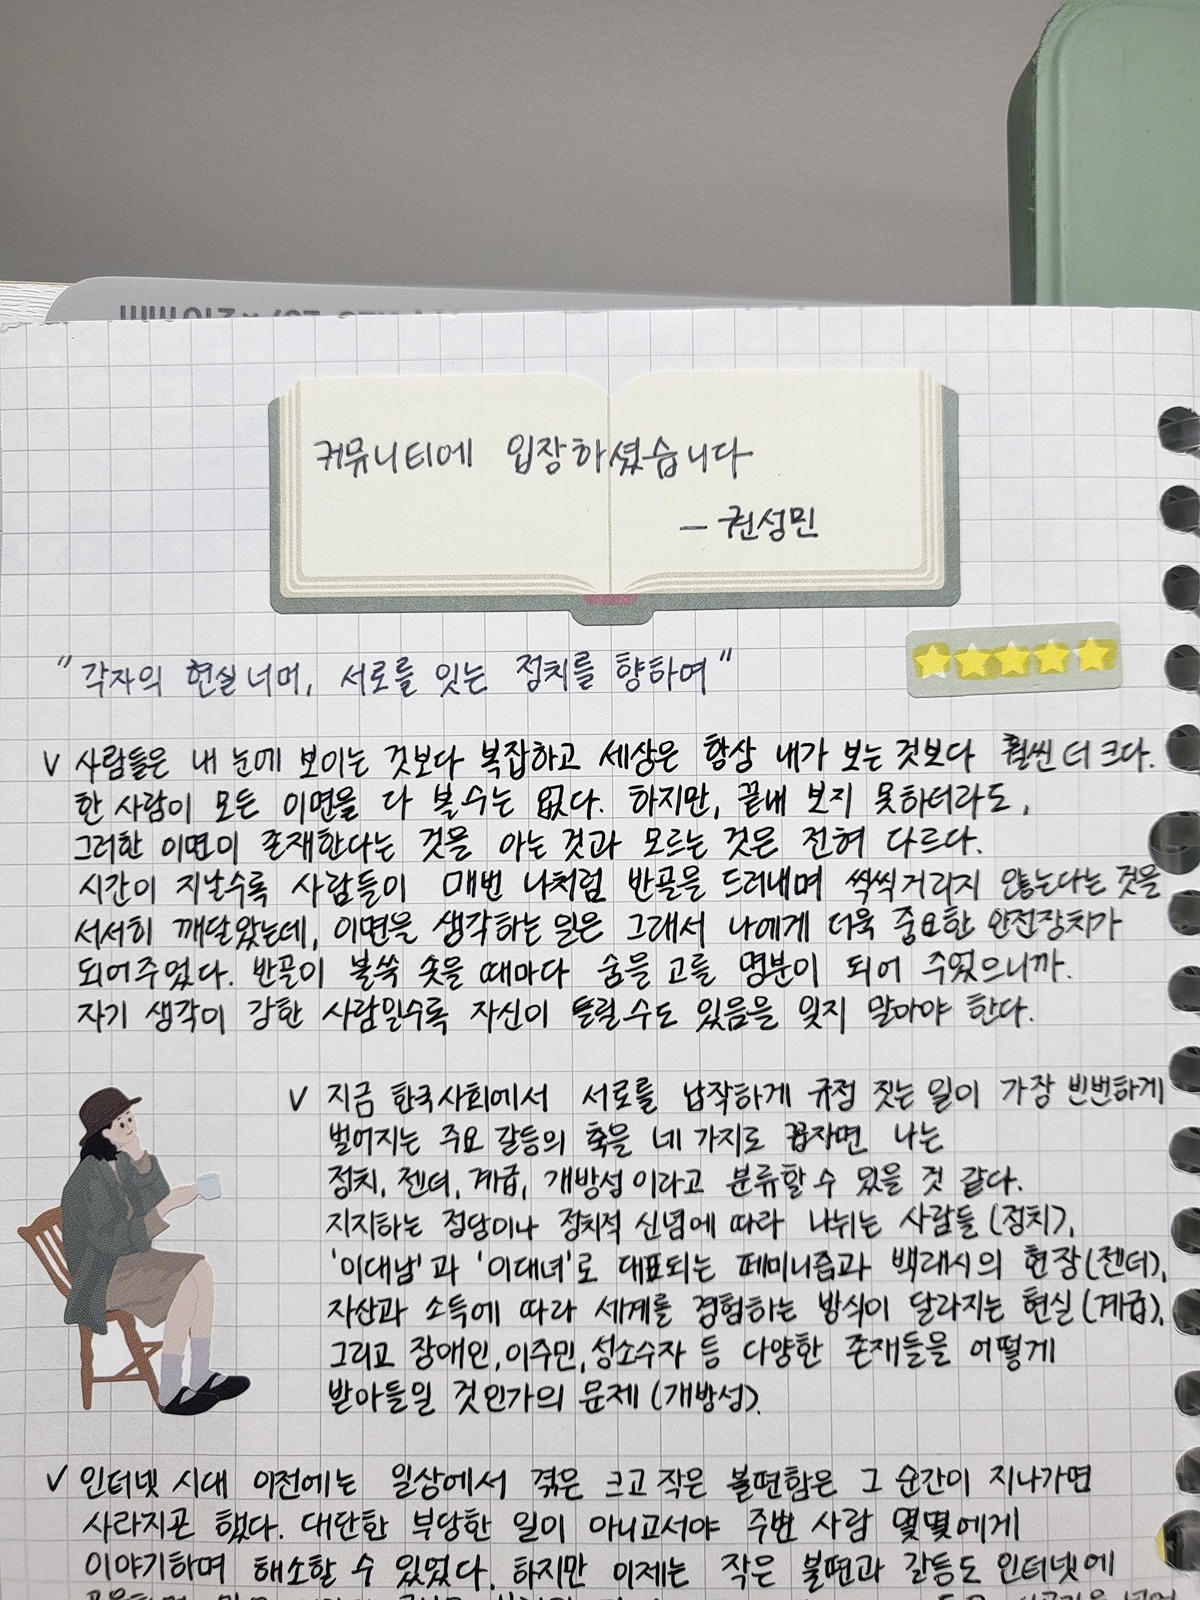 커뮤니티에 입장하셨습니다
- 권성민
"각자의 현실 너머, 서로를 잇는 정치를 향하여"
V 사람들은 내 눈에 보이는 것보다 복잡하고 세상은 항상 내가 보는 것보다 훨씬 더 크다.
한 사람이 모든 이면을 다 볼 수는 없다. 하지만, 끝내 보지 못하더라도,
그러한 이면이 존재한다는 것을 아는 것과 모르는 것은 전혀 다르다.
시간이 지날수록 사람들이 매번 나처럼 반골을 드러내며 씩씩거리지 않는다는 것을
서서히 깨달았는데, 이면을 생각하는 일은 그래서 나에게 더욱 중요한 안전장치가
되어주었다. 반골이 불쑥 솟을 때마다 숨을 고를 명분이 되어 주었으니까.
자기 생각이 강한 사람일수록 자신이 틀릴 수도 있음을 잊지 말아야 한다.
V 지금 한국사회에서 서로를 납작하게 규정 짓는 일이 가장 빈번하게
벌어지는 주요 갈등의 축을 네 가지로 꼽자면 나는
정치, 젠더, 계급, 개방성이라고 분류할 수 있을 것 같다.
지지하는 정당이나 정치적 신념에 따라 나뉘는 사람들 (정치),
'이대남'과 '이대녀'로 대표되는 페미니즘과 백래시의 현장(젠더),
자산과 소득에 따라 세계를 경험하는 방식이 달라지는 현실(계급),
그리고 장애인, 이주민, 성소수자 등 다양한 존재들을 어떻게
받아들일 것인가의 문제 (개방성).
V 인터넷 시대 이전에는 일상에서 겪은 크고 작은 불편함은 그 순간이 지나가면
사라지곤 했다. 대단한 부당한 일이 아니고서야 주변 사람 몇몇에게
이야기하며 해소할 수 있었다. 하지만 이제는 작은 불편과 갈등도 인터넷에